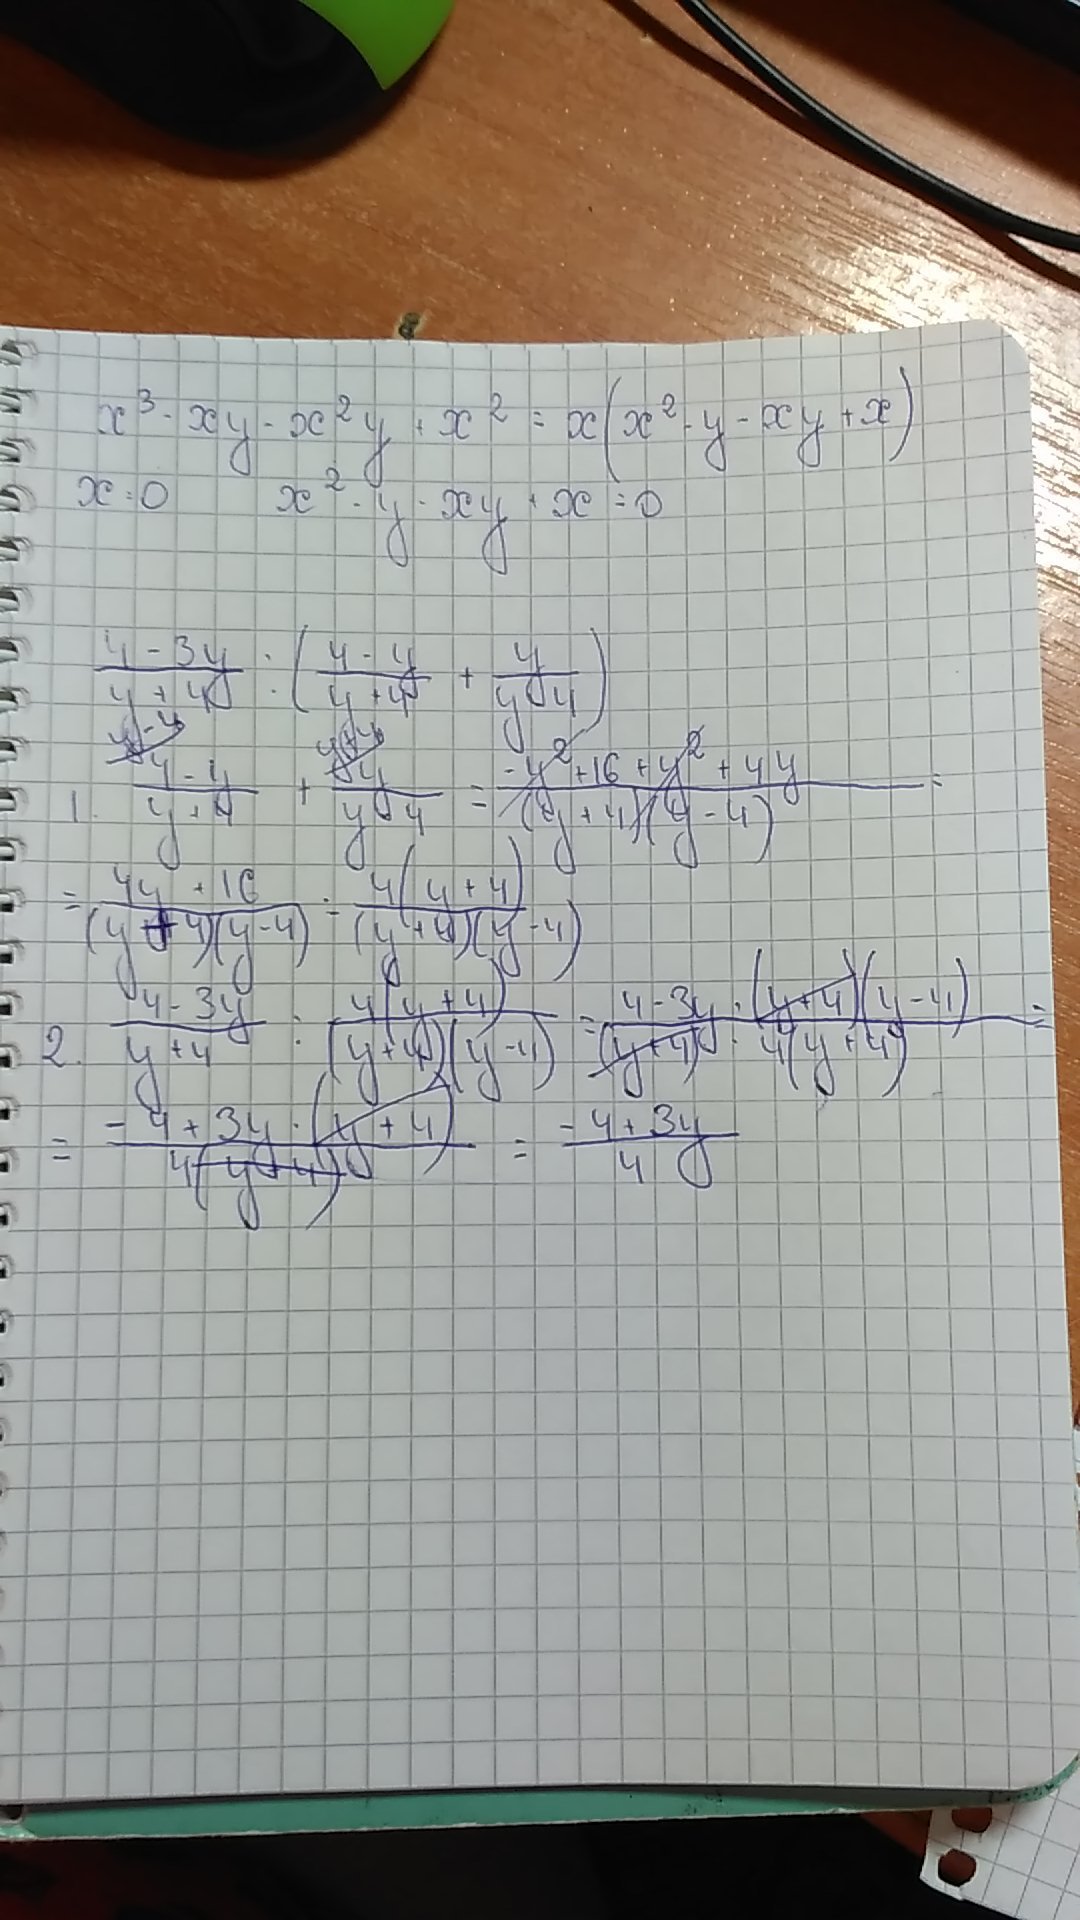 x³ - xy - x²y + x² = x(x² - y - xy + x)
x = 0 x² - y - xy + x = 0
(4 - 3y)/(y + 4) : ((4 - y)/(y + 4) + y/(y - 4))
1. (4 - y)/(y + 4) + y/(y - 4) = (-y² + 16 + y² + 4y)/((y + 4)(y - 4)) =
= (4y + 16)/((y + 4)(y - 4)) = 4(y + 4)/((y + 4)(y - 4))
2. (4 - 3y)/(y + 4) : 4(y + 4)/((y + 4)(y - 4)) = (4 - 3y · (y + 4)(y - 4))/((y + 4) · 4(y + 4)) =
= (-4 + 3y · (y + 4))/(4(y + 4)) = (-4 + 3y)/4